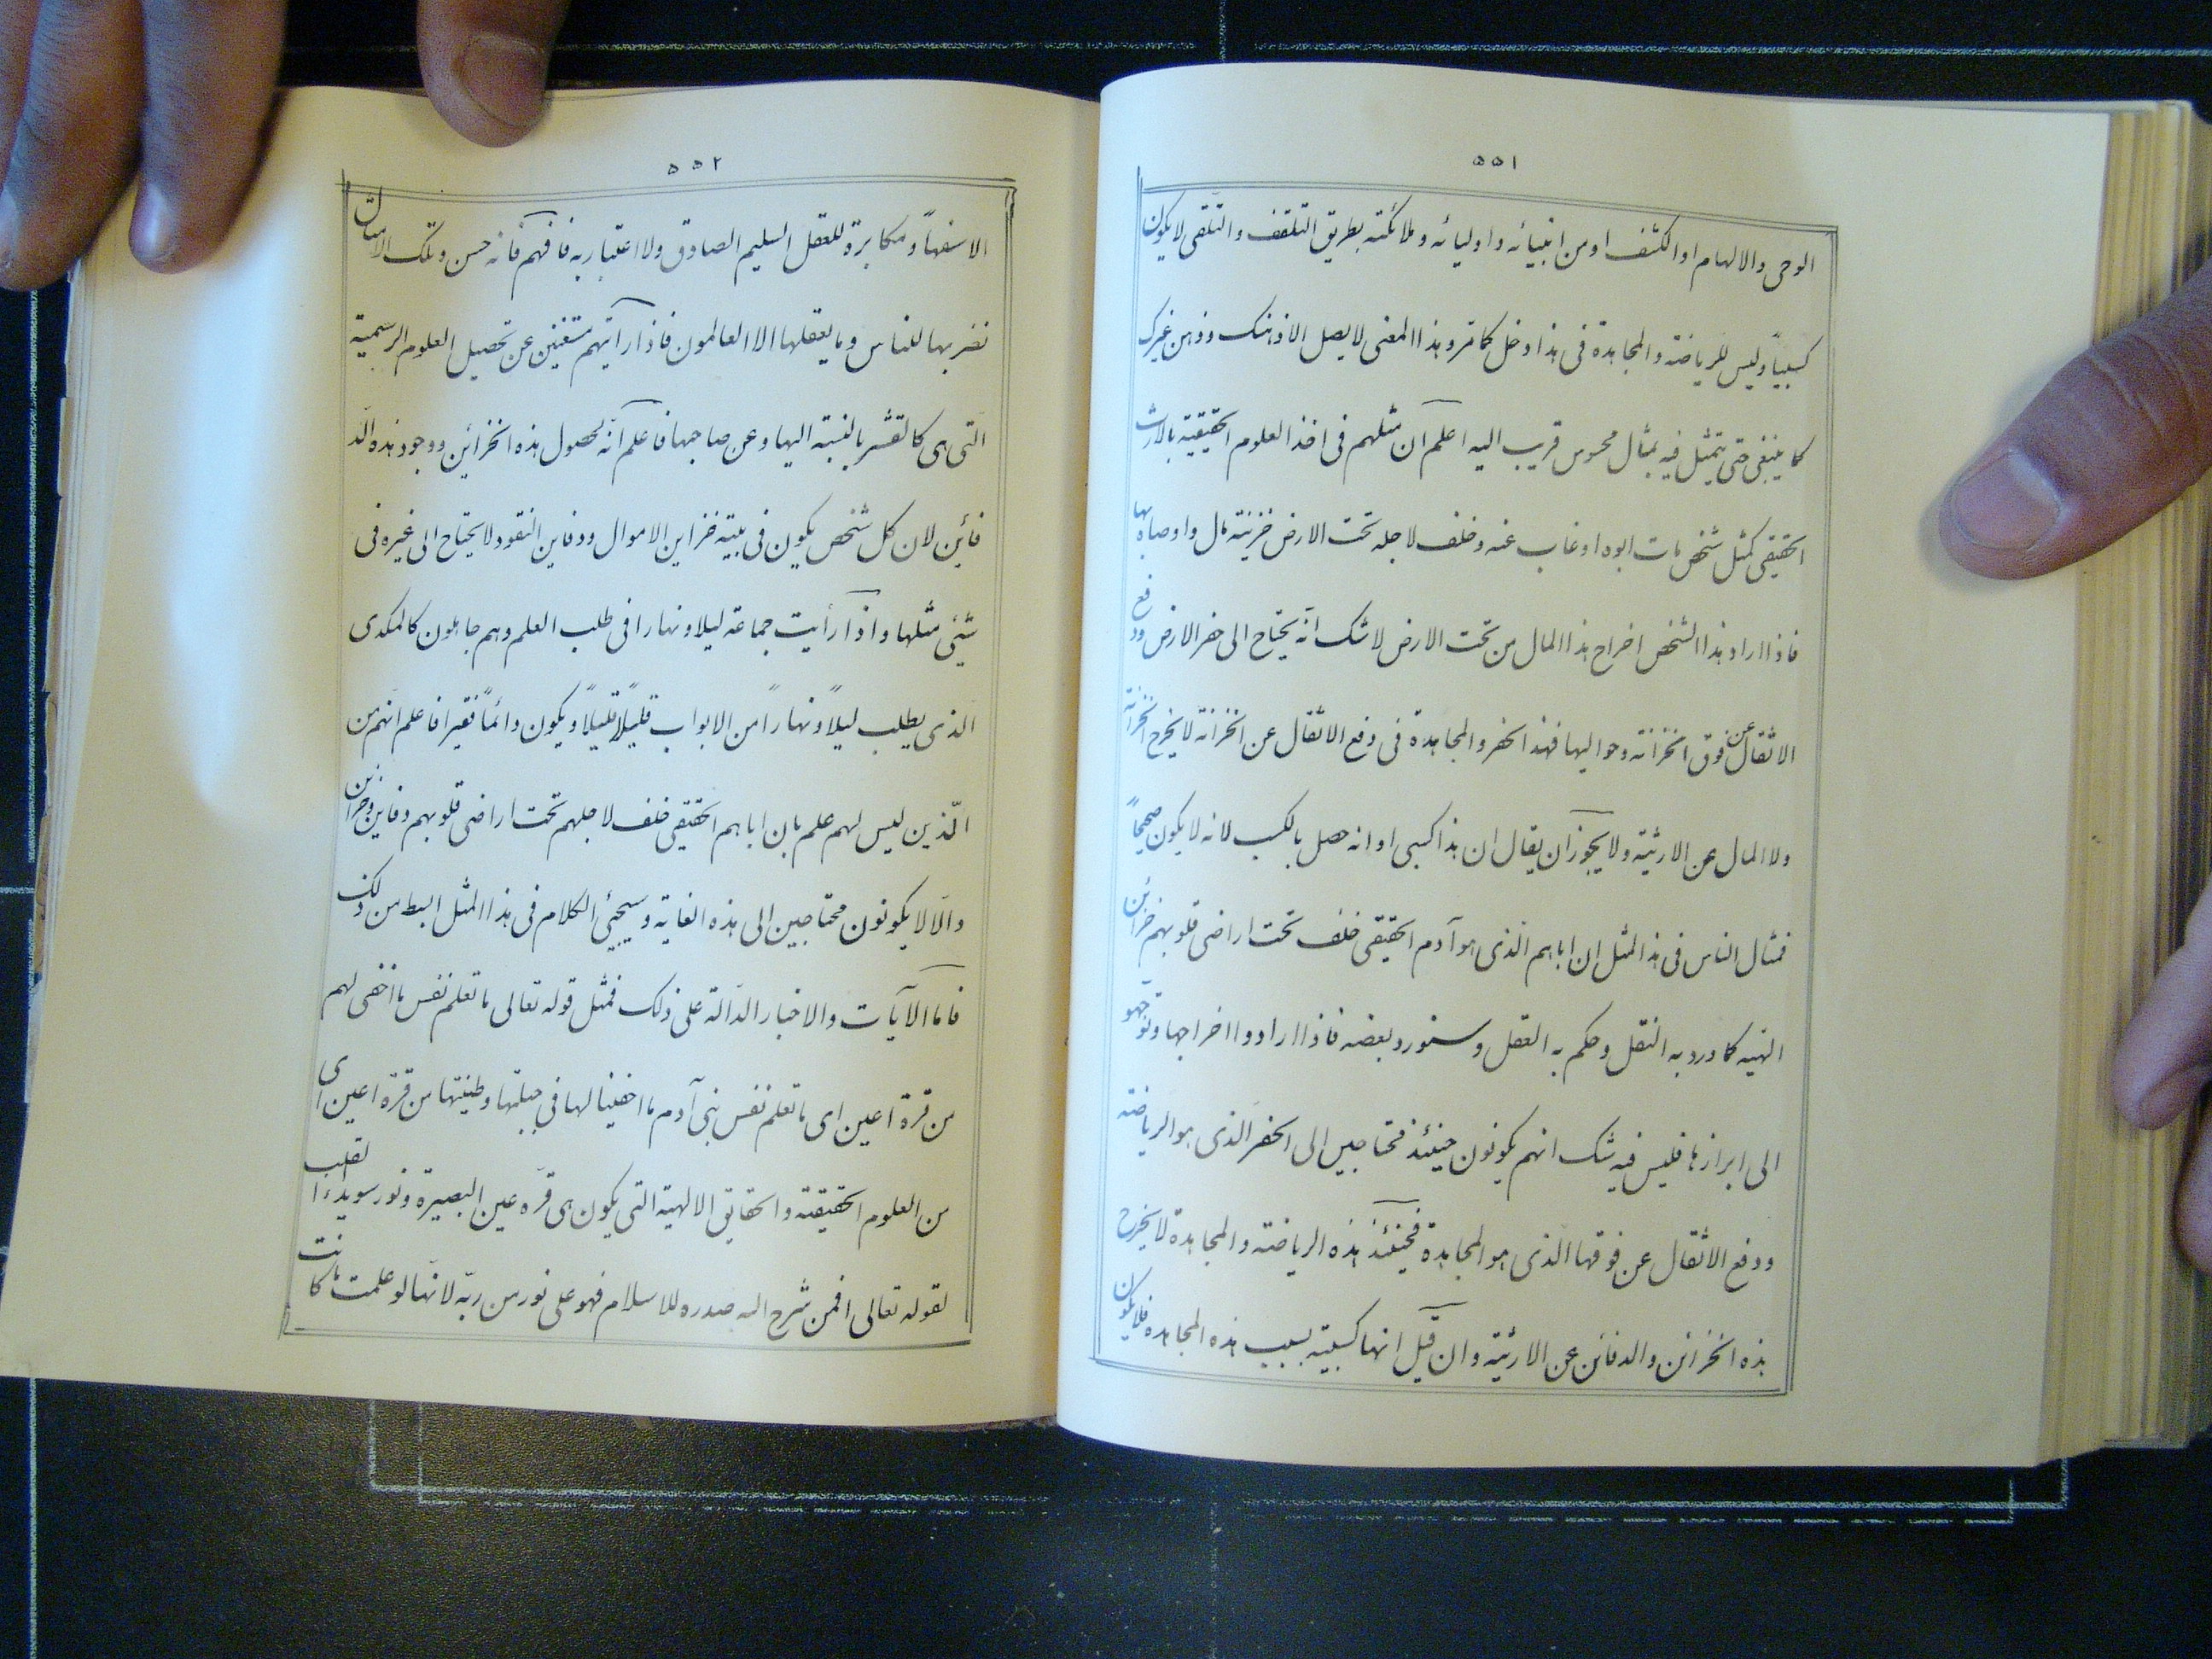 ٥٥١
الوحى والالهام او الكشف او من انبيائه واوليائه وملائكته بطريق التلقف والتلقى لا يكون
كسبياً وليس للرياضة والمجاهدة فى هذا دخل كما مرّ وهذا المعنى لا يصل الا ذهنك وذهن غيرك
كما ينبغى حتى يتمثل فيه بمثال محسوس قريب اليه اعلم ان مثلهم فى اخذ العلوم الحقيقية بالارث
الحقيقى كمثل شخص مات ابوه او غاب عنه وخلف لاجله تحت الارض خزينة مال واوصاه بها
فاذا اراد هذا الشخص اخراج هذا المال من تحت الارض لا شك انّه يحتاج الى حفر الارض ودفع
الاثقال عن فوق الخزانة وحواليها فهذا الحفر والمجاهدة فى دفع الاثقال عن الخزانة لا يخرج الخزانة
ولا المال عن الارثية ولا يجوز ان يقال ان هذا كسبى او انه حصل بالكسب لانه لا يكون صحيحاً
فمثال الناس فى هذا المثل ان اباهم الّذى هو آدم الحقيقى خلف تحت اراضى قلوبهم خزائن
الهيه كما ورد به النقل وحكم به العقل وستورد بعضه فاذا ارادوا اخراجها وتوجّهوا
الى ابرازها فليس فيه شك انهم يكونون حينئذ محتاجين الى الحفر الذى هو الرياضة
ودفع الاثقال عن فوقها الذى هو المجاهدة فحينئذ هذه الرياضة والمجاهدة لا يخرج
هذه الخزائن والدفائن عن الارثية وان قيل انها كسبية بسبب هذه المجاهدة فلا يكون
٥٥٢
الا سفهاً ومكابرة للعقل السليم الصادق ولا اعتبار به فافهم فانه حسن وتلك الامثال
نضربها للناس وما يعقلها الا العالمون فاذا رأيتهم مستغنين عن تحصيل العلوم الرسمية
التى هى كالقشر بالنسبة اليها وعن صاحبها فاعلم انّه لحصول هذه الخزائن ووجود هذه الد
فائن لان كل شخص يكون فى بيته خزاين الاموال ودفاين النقود لا يحتاج الى غيره فى
شيئ مثلها واذا رأيت جماعة ليلا ونهارا فى طلب العلم وهم جاهلون كالمكدى
الّذى يطلب ليلاً ونهاراً من الابواب قليلاً قليلاً ويكون دائماً فقيرا فاعلم انّهم من
الّذين ليس لهم علم بان اباهم الحقيقى خلف لاجلهم تحت اراضى قلوبهم دفاين وخزاين
والّا لا يكونون محتاجين الى هذه الغاية وسيجيئ الكلام فى هذا المثل ابسط من ذلك
فاما الآيات والاخبار الدالة على ذلك فمثل قوله تعالى ما تعلم نفس ما اخفى لهم
من قرة اعين اى ما تعلم نفس بنى آدم ما اخفينا لها فى جبلتها وطينتها من قرة اعين اى
من العلوم الحقيقية والحقايق الالهية التى يكون هى قرّه عين البصيرة ونور سويداء القلب
لقوله تعالى افمن شرح الله صدره للاسلام فهو على نور من ربّه لانّها لو علمت ما كانت